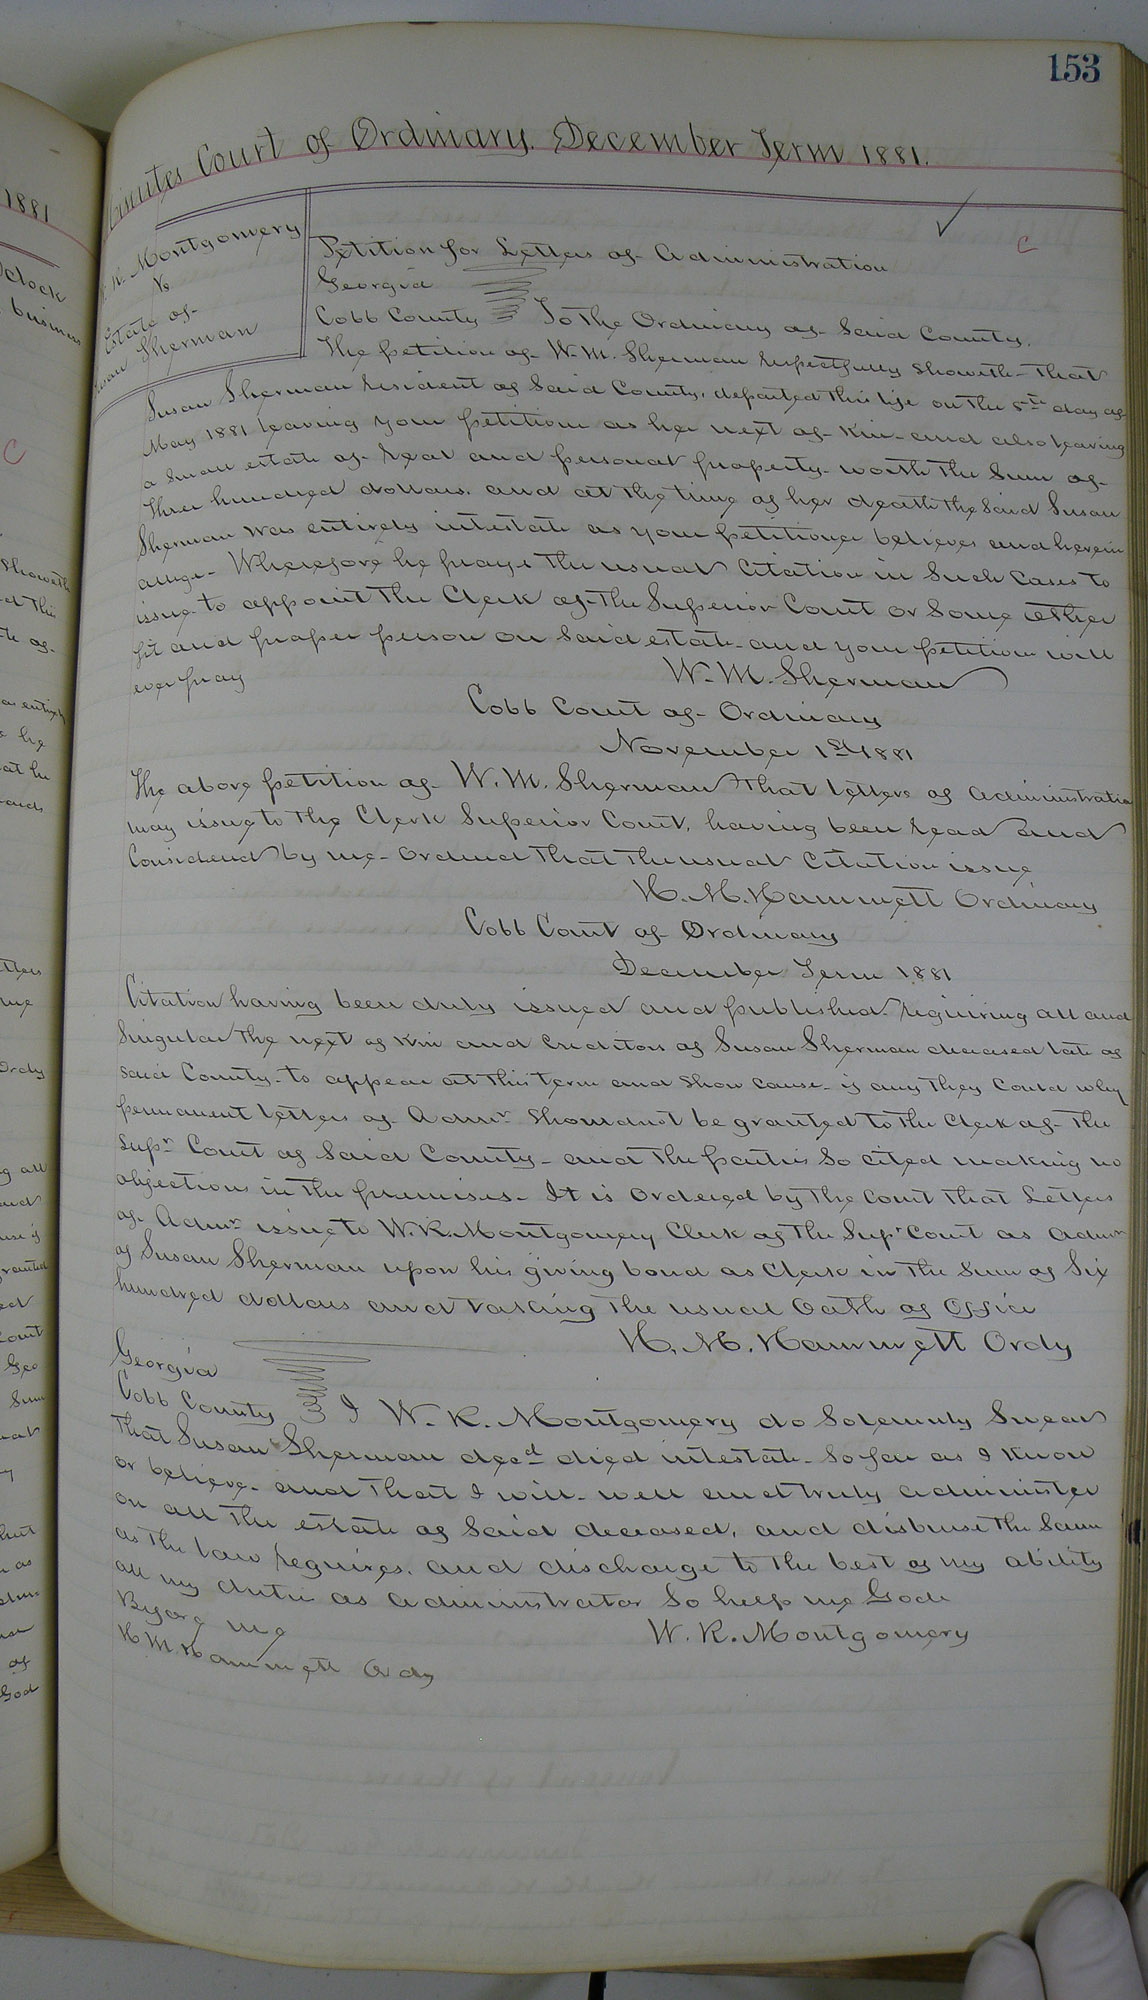 153
Minutes Court of Ordinary. December Term 1881.
W. R. Montgomery
vs
Estate of
Susan Sherman
Petition for Letters of Administration
Georgia
Cobb County To the Ordinary of Said County.
The petition of W. M. Sherman respectfully showeth that
Susan Sherman resident of Said County, departed this life on the 8th day of
May 1881 leaving your petitioner as her next of Kin and also leaving
a small estate of real and personal property worth the Sum of
Three hundred dollars. and at the time of her death the Said Susan
Sherman was entirely intestate as your petitioner believes and herein
alleges. Wherefore he prays the usual Citation in Such Cases to
issue to appoint the Clerk of the Superior Court or Some other
fit and proper person on Said estate and your petitioner will
ever pray W. M. Sherman
Cobb Court of Ordinary
November 1st 1881
The above petition of W. M. Sherman that letters of administration
may issue to the Clerk Superior Court, having been read and
Considered by me ordered that the usual Citation issue
H. M. Hammett Ordinary
Cobb Court of Ordinary
December Term 1881
Citation having been duly issued and published requiring all and
Singular the next of Kin and Creditors of Susan Sherman deceased late of
said County to appear at this term and show cause if any they Could why
permanent letters of Admr should not be granted to the Clerk of the
Supr Court of Said County and the parties So cited making no
objections in the premises It is ordered by the Court that Letters
of Admr issue to W. R. Montgomery Clerk of the Supr Court as Admr
of Susan Sherman upon his giving bond as Clerk in the Sum of Six
hundred dollars and taking the usual Oath of Office
H. M. Hammett Ordy
Georgia
Cobb County I W. R. Montgomery do Solemnly Swear
that Susan Sherman decd died intestate So far as I know
or believe and that I will well and truly administer
on all the estate of Said deceased, and disburse the Same
as the law requires. and discharge to the best of my ability
all my duties as administrator So help me God
Before me W. R. Montgomery
H M Hammett Ordy